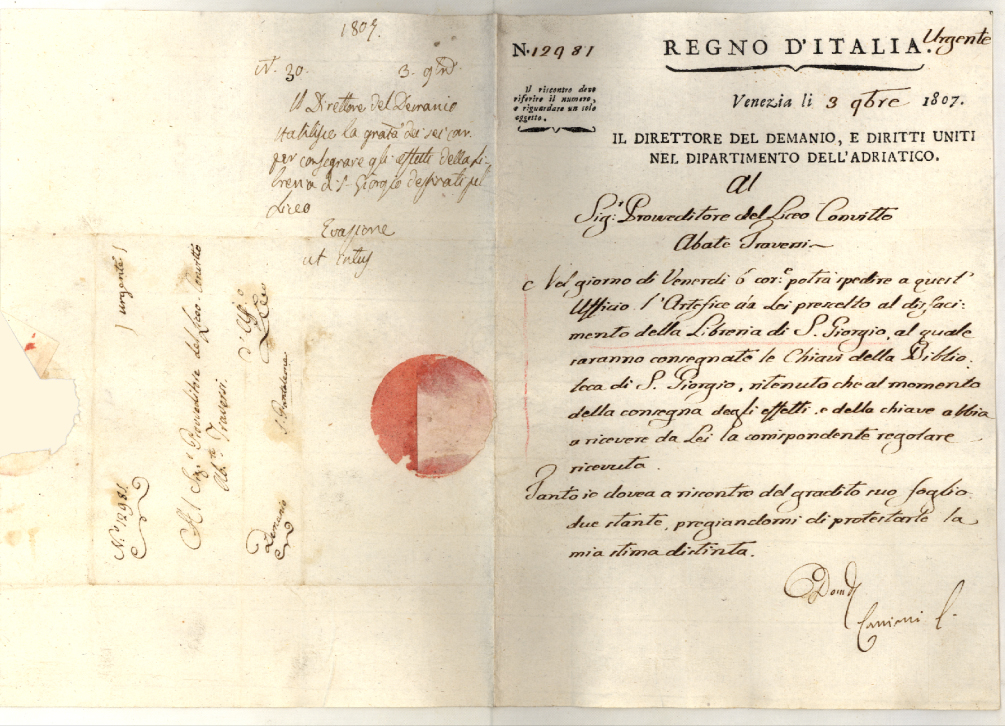 1807.
N. 30. 3. 9bre
Il Direttore del Demanio
stabilisce la giornata dei sei cor.
per consegnare gli effetti della Li-
breria di S. Giorgio destinati pel
Liceo
Evasione
ut intus
| urgente |
Al Sig.r Proveditor del Liceo Convitto
Ab.te Traversi.
D'Uff.o
S. Pantaleone
N.o 12981.
Demanio
N. 12981
REGNO D'ITALIA.
Urgente
Il riscontro deve
riferire il numero,
e riguardare un solo
oggetto.
Venezia li 3 9bre 1807.
IL DIRETTORE DEL DEMANIO, E DIRITTI UNITI
NEL DIPARTIMENTO DELL'ADRIATICO.
Al
Sig.r Proveditore del Liceo Convitto
Abate Traversi
Nel giorno di Venerdi 6 cor.e potrà spedire a quest'
Ufficio l'Artefice da Lei prescelto al disfaci-
mento della Libreria di S. Giorgio, al quale
saranno consegnate le Chiavi della Biblio-
teca di S. Giorgio, ritenuto che al momento
della consegna degli effetti, e della chiave abbia
a ricevere da Lei la corrispondente regolare
ricevuta.
Tanto io dovea a riscontro del gradito suo foglio
due stante, pregiandomi di protestarle la
mia stima distinta.